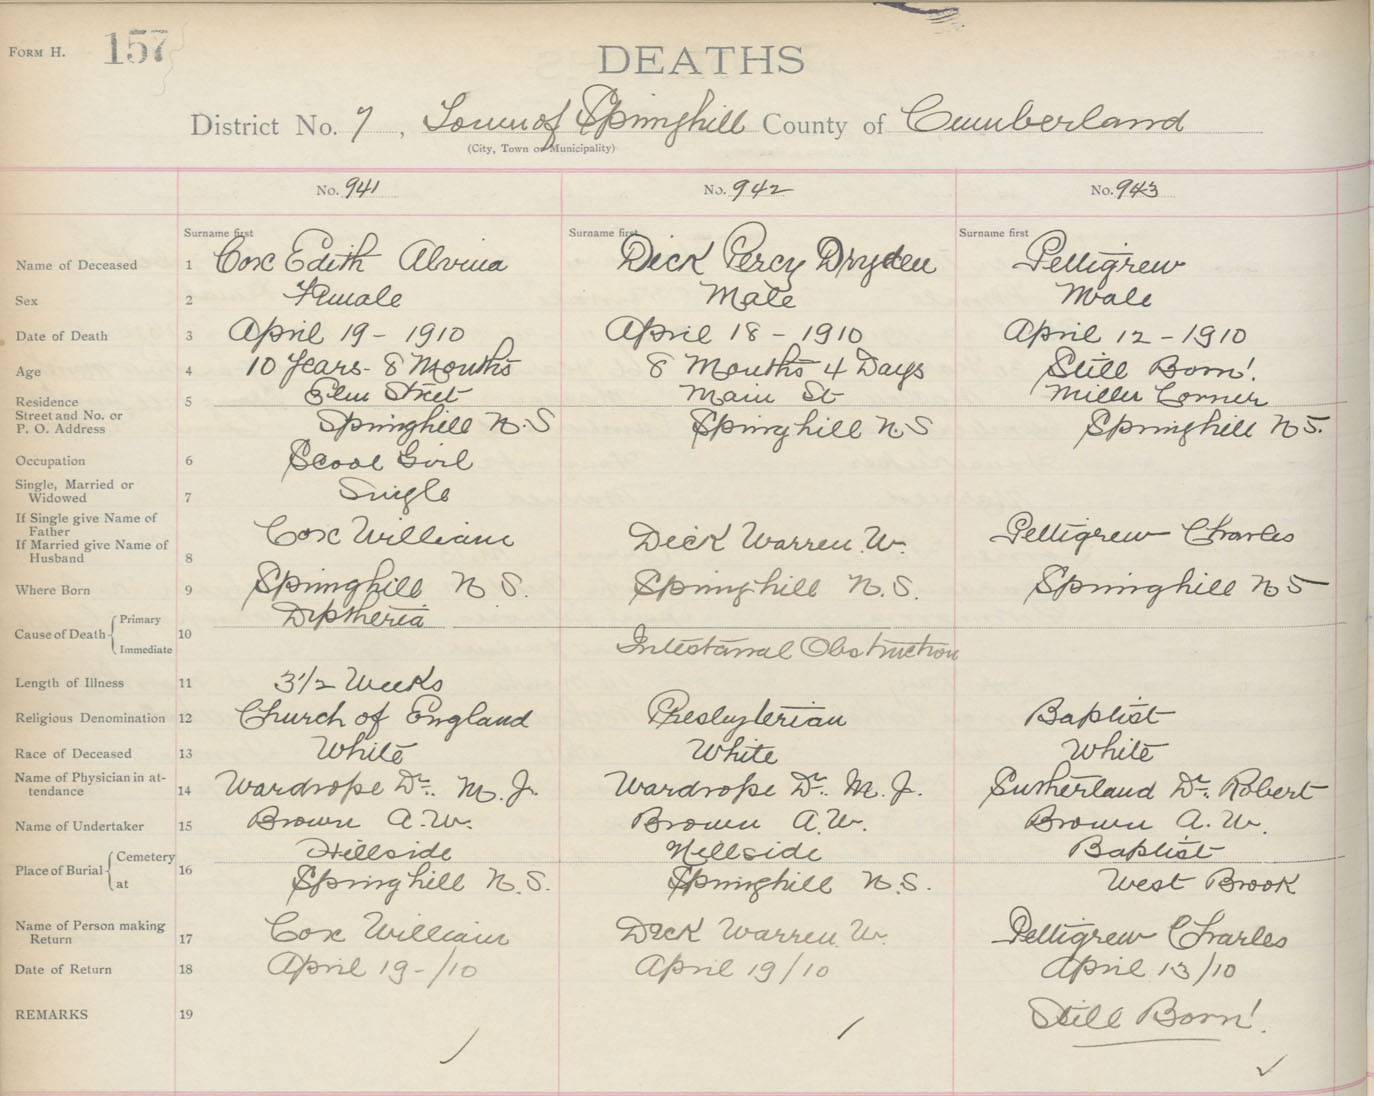 FORM H. 157
DEATHS
District No. 7, Town of Springhill County of Cumberland
(City, Town or Municipality)
No. 941 No. 942 No. 943
Surname first Surname first Surname first
Name of Deceased 1 Cox Edith Alvina Dick Percy Dryden Pettigrew
Sex 2 Female Male Male
Date of Death 3 April 19 - 1910 April 18 - 1910 April 12 - 1910
Age 4 10 Years - 8 Months 8 Months 4 Days Still Born!
Residence 5 Elm Street Main St Miller Corner
Street and No. or
P. O. Address Springhill N.S Springhill N.S Springhill N S.
Occupation 6 Scool Girl
Single, Married or
Widowed 7 Single
If Single give Name of
Father
If Married give Name of
Husband 8 Cox William Dick Warren W. Pettigrew Charles
Where Born 9 Springhill N S. Springhill N.S. Springhill N S
Cause of Death Primary Diptheria
10
Immediate Intestanal Obstruction
Length of Illness 11 3 1/2 Weeks
Religious Denomination 12 Church of England Presbyterian Baptist
Race of Deceased 13 White White White
Name of Physician in at-
tendance 14 Wardrope Dr. M. J. Wardrope Dr. M. J. Sutherland Dr. Robert
Name of Undertaker 15 Brown A.W. Brown A.W. Brown A. W.
Place of Burial Cemetery Hillside Hillside Baptist
16
at Springhill N.S. Springhill N.S. West Brook
Name of Person making
Return 17 Cox William Dick Warren W. Pettigrew Charles
Date of Return 18 April 19-/10 April 19/10 April 13/10
REMARKS 19 Still Born!